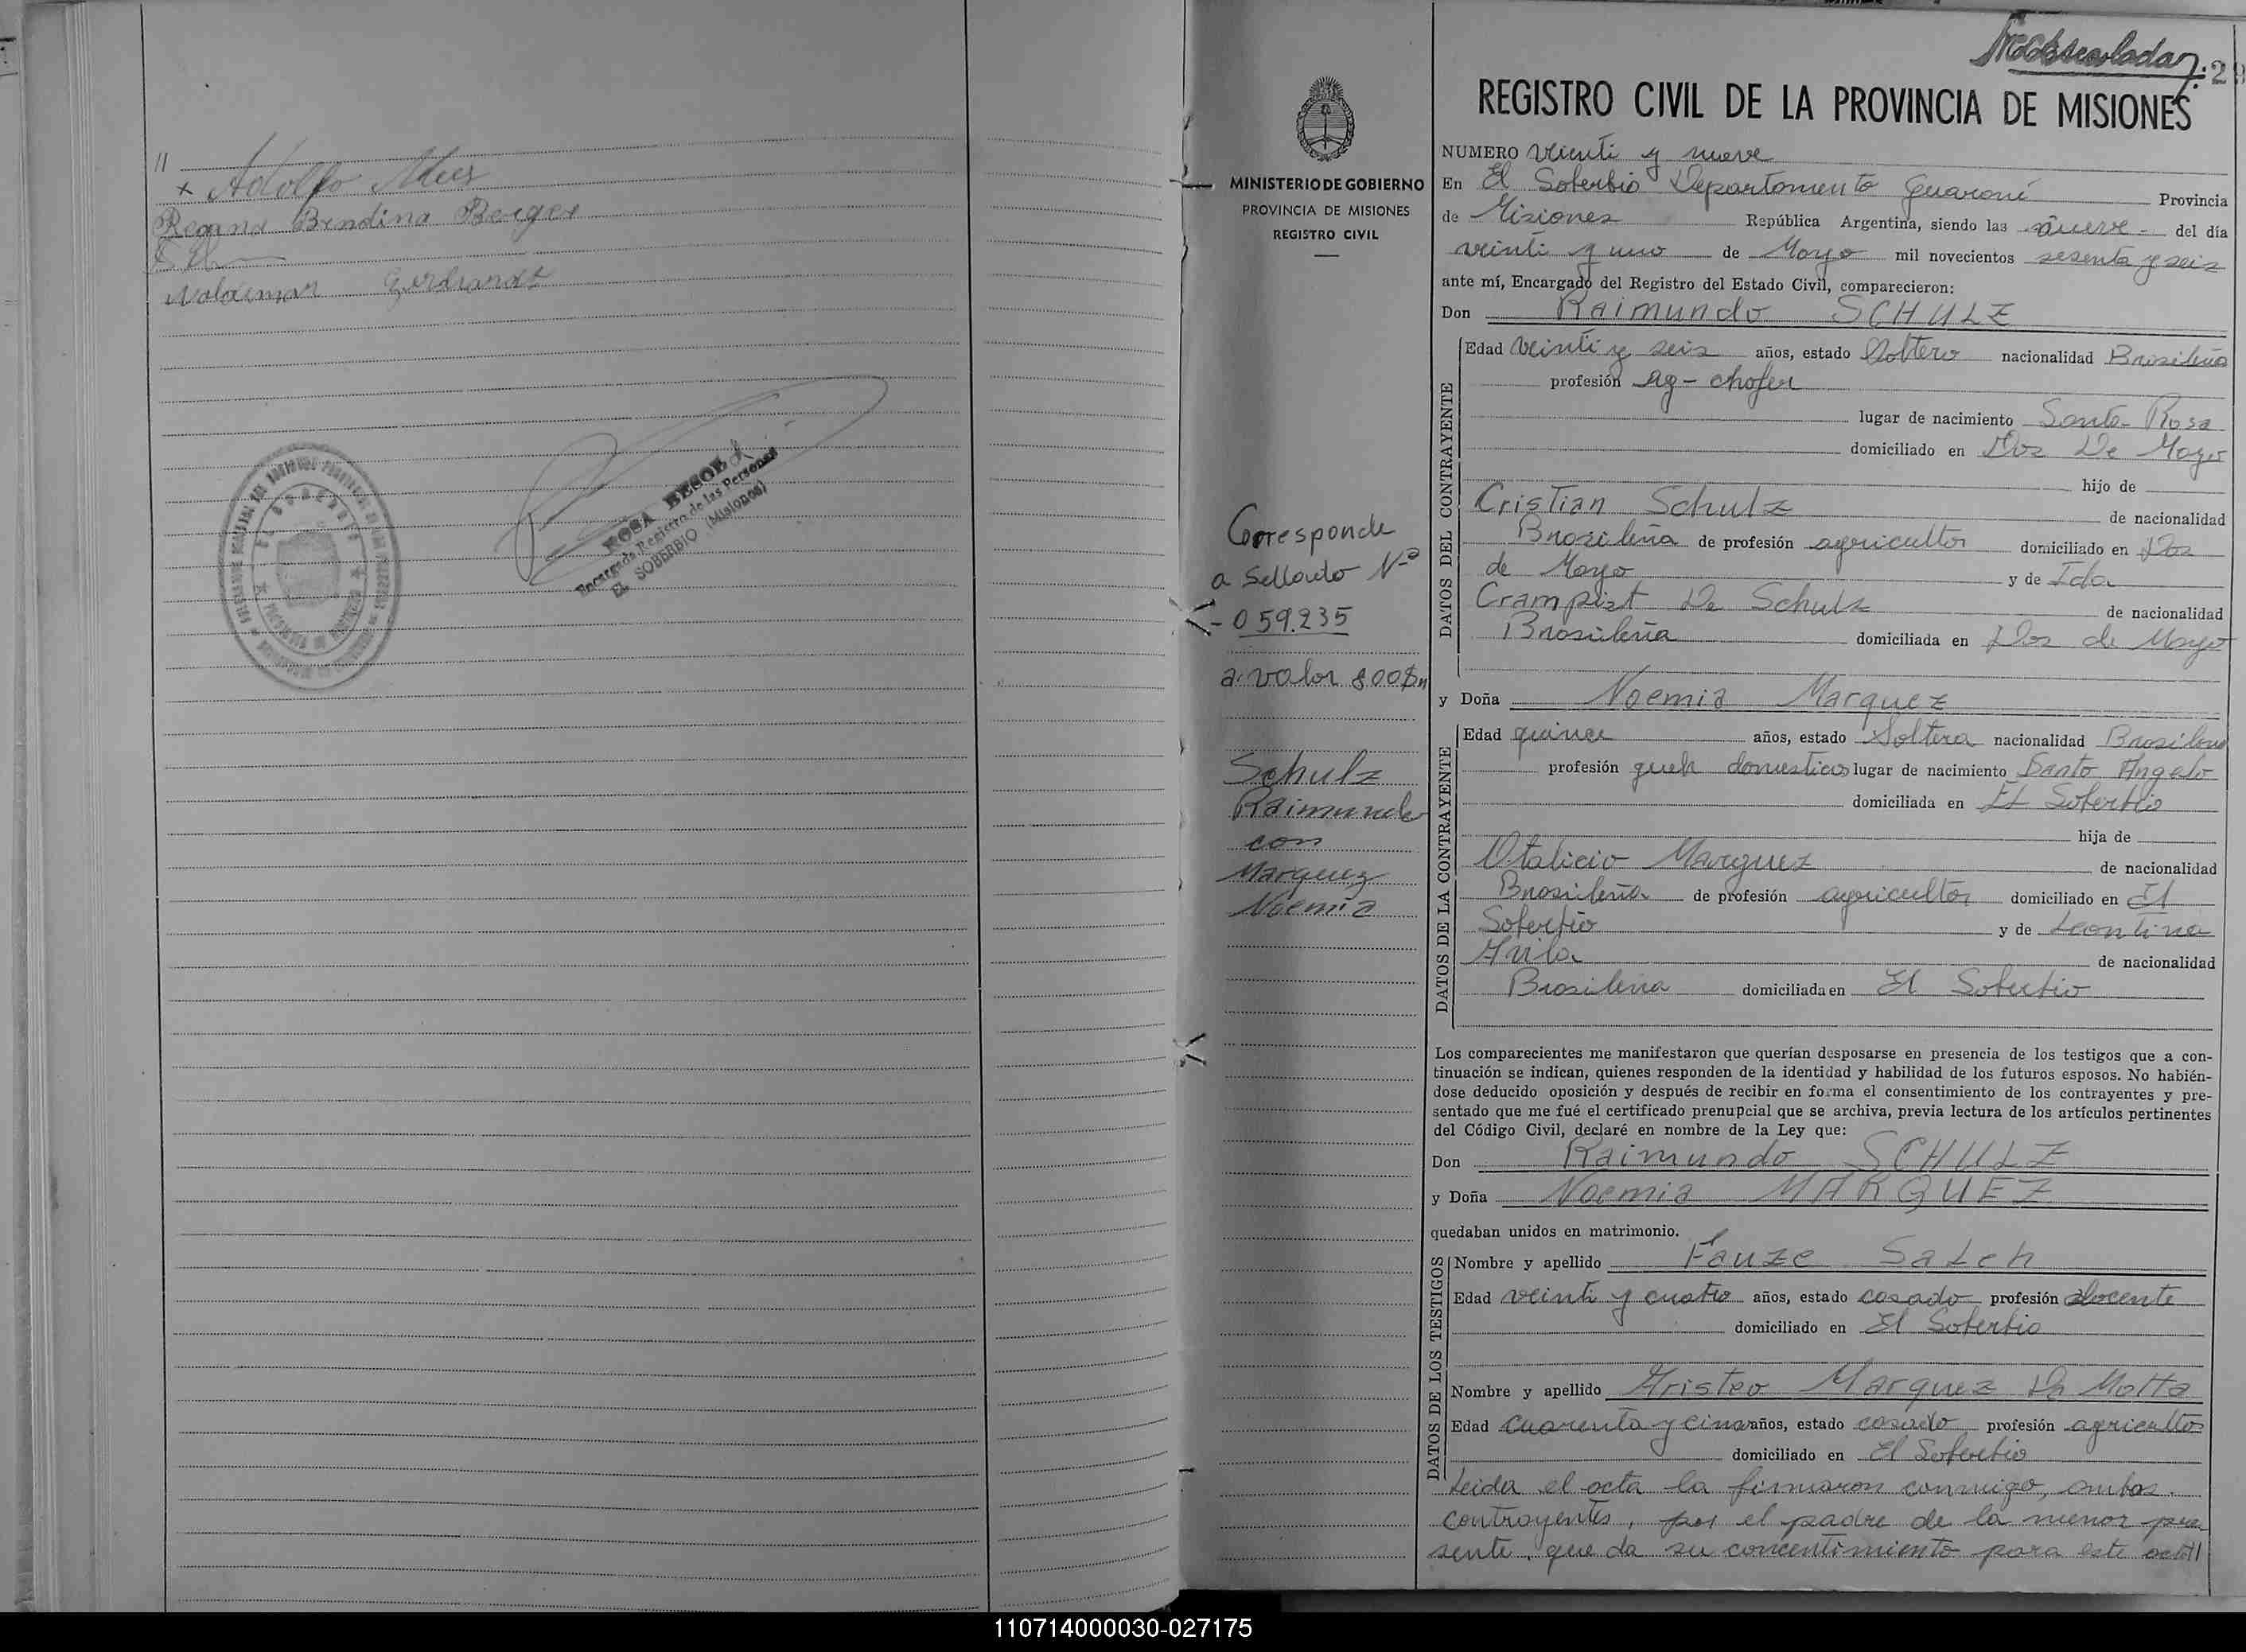 //
x Adolfo
Regina Bendina Berger
Waldemar
ROSA BESOLD
Encargado Registro de las Personas
EL SOBERBIO (Misiones)
29
REGISTRO CIVIL DE LA PROVINCIA DE MISIONES
MINISTERIO DE GOBIERNO
PROVINCIA DE MISIONES
REGISTRO CIVIL
Corresponde
a Sellado Nº
- 059.235
a valor 800 $
Schulz
Raimundo
con
Marquez
Noemia
NUMERO veinti y nueve
En El Soberbio Departamento Guaraní Provincia
de Misiones República Argentina, siendo las nueve - del día
veinti y uno de Mayo mil novecientos sesenta y seis
ante mí, Encargado del Registro del Estado Civil, comparecieron:
Don Raimundo SCHULZ
DATOS DEL CONTRAYENTE
Edad veinti y seis años, estado Soltero nacionalidad Brasileña
profesión Ag - chofer
lugar de nacimiento Santa Rosa
domiciliado en Dos De Mayo
hijo de
Cristian Schulz de nacionalidad
Brasileña de profesión agricultor domiciliado en Dos
de Mayo y de Ida
Crampizt De Schulz de nacionalidad
Brasileña domiciliada en Dos de Mayo
y Doña Noemia Marquez
DATOS DE LA CONTRAYENTE
Edad quince años, estado Soltera nacionalidad Brasileña
profesión queh domesticos lugar de nacimiento Santo Angelo
domiciliada en El Soberbio
hija de
Otalicio Marquez de nacionalidad
Brasileña de profesión agricultor domiciliado en El
Soberbio y de Leontina
Avila de nacionalidad
Brasileña domiciliada en El Soberbio
Los comparecientes me manifestaron que querían desposarse en presencia de los testigos que a con-
tinuación se indican, quienes responden de la identidad y habilidad de los futuros esposos. No habién-
dose deducido oposición y después de recibir en forma el consentimiento de los contrayentes y pre-
sentado que me fué el certificado prenupcial que se archiva, previa lectura de los artículos pertinentes
del Código Civil, declaré en nombre de la Ley que:
Don Raimundo SCHULZ
y Doña Noemia MARQUEZ
quedaban unidos en matrimonio.
DATOS DE LOS TESTIGOS
Nombre y apellido Fauze Saleh
Edad veinti y cuatro años, estado casado profesión docente
domiciliado en El Soberbio
Nombre y apellido Aristeo Marquez Da Motta
Edad cuarenta y cinco años, estado casado profesión agricultor
domiciliado en El Soberbio
Leida el acta la firmaron conmigo, ambos
contrayentes, por el padre de la menor pre-
sente, que da su concentimiento para este acto//
110714000030-027175